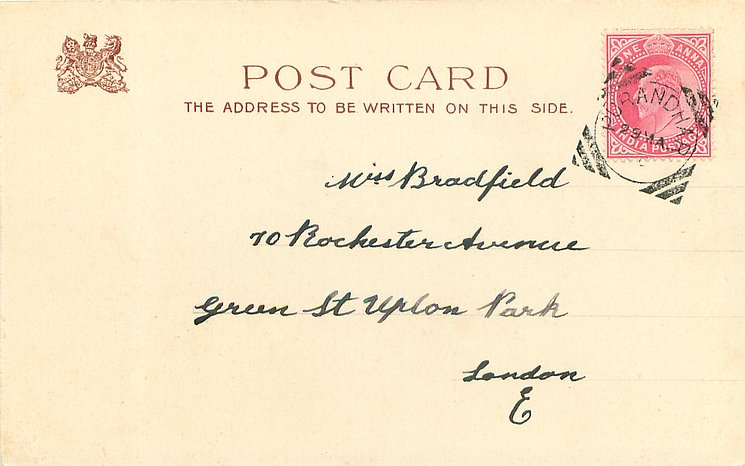 POST CARD
THE ADDRESS TO BE WRITTEN ON THIS SIDE.
ONE ANNA
INDIA POSTAGE
RANDHA
29 MA
Miss Bradfield
70 Rochester Avenue
Green St Upton Park
London
E